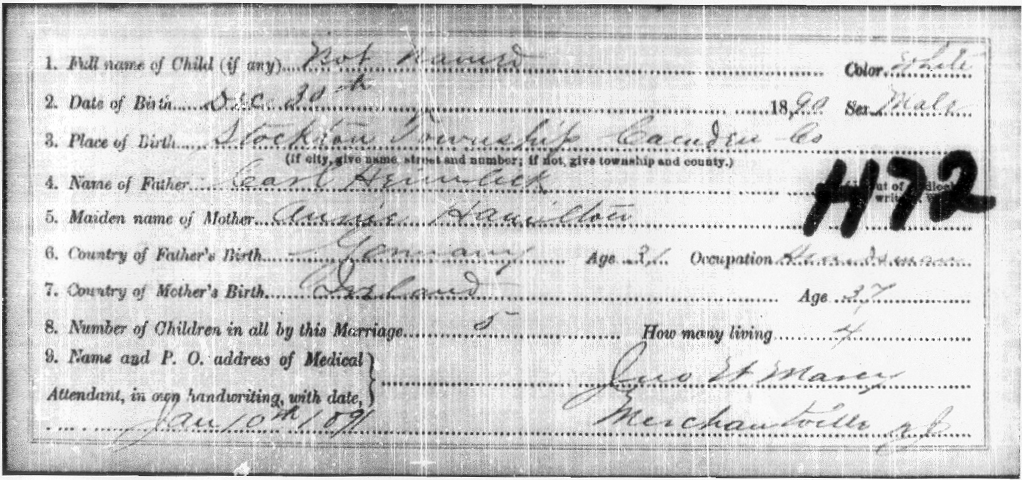 1. Full name of Child (if any) Not Named Color White
2. Date of Birth Dec 30th 1890 Sex Male
3. Place of Birth Stockton Township Camden Co
(if city, give name, street and number; if not, give township and county.)
4. Name of Father Carl out of
H72
5. Maiden name of Mother Annie Hamilton
6. Country of Father's Birth Germany Age 31 Occupation
7. Country of Mother's Birth Ireland Age 37
8. Number of Children in all by this Marriage 5 How many living 4
9. Name and P. O. address of Medical
Attendant, in own handwriting, with date, Jno H Marcy
Jan 10th 1891 Merchantville NJ